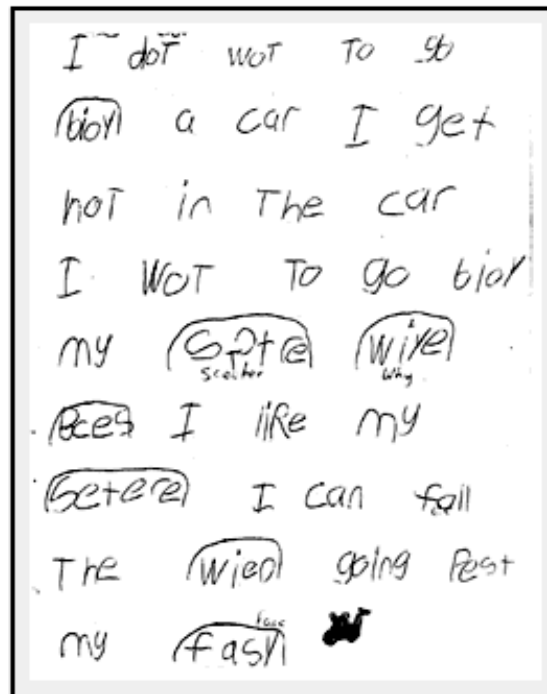 I dot wot to go
bioy a car I get
hot in The car
I wot To go bioy
my Scotre wiye
Scooter Why
Bces I like my
Setere I can fall
The wied going Pest
my fasy face